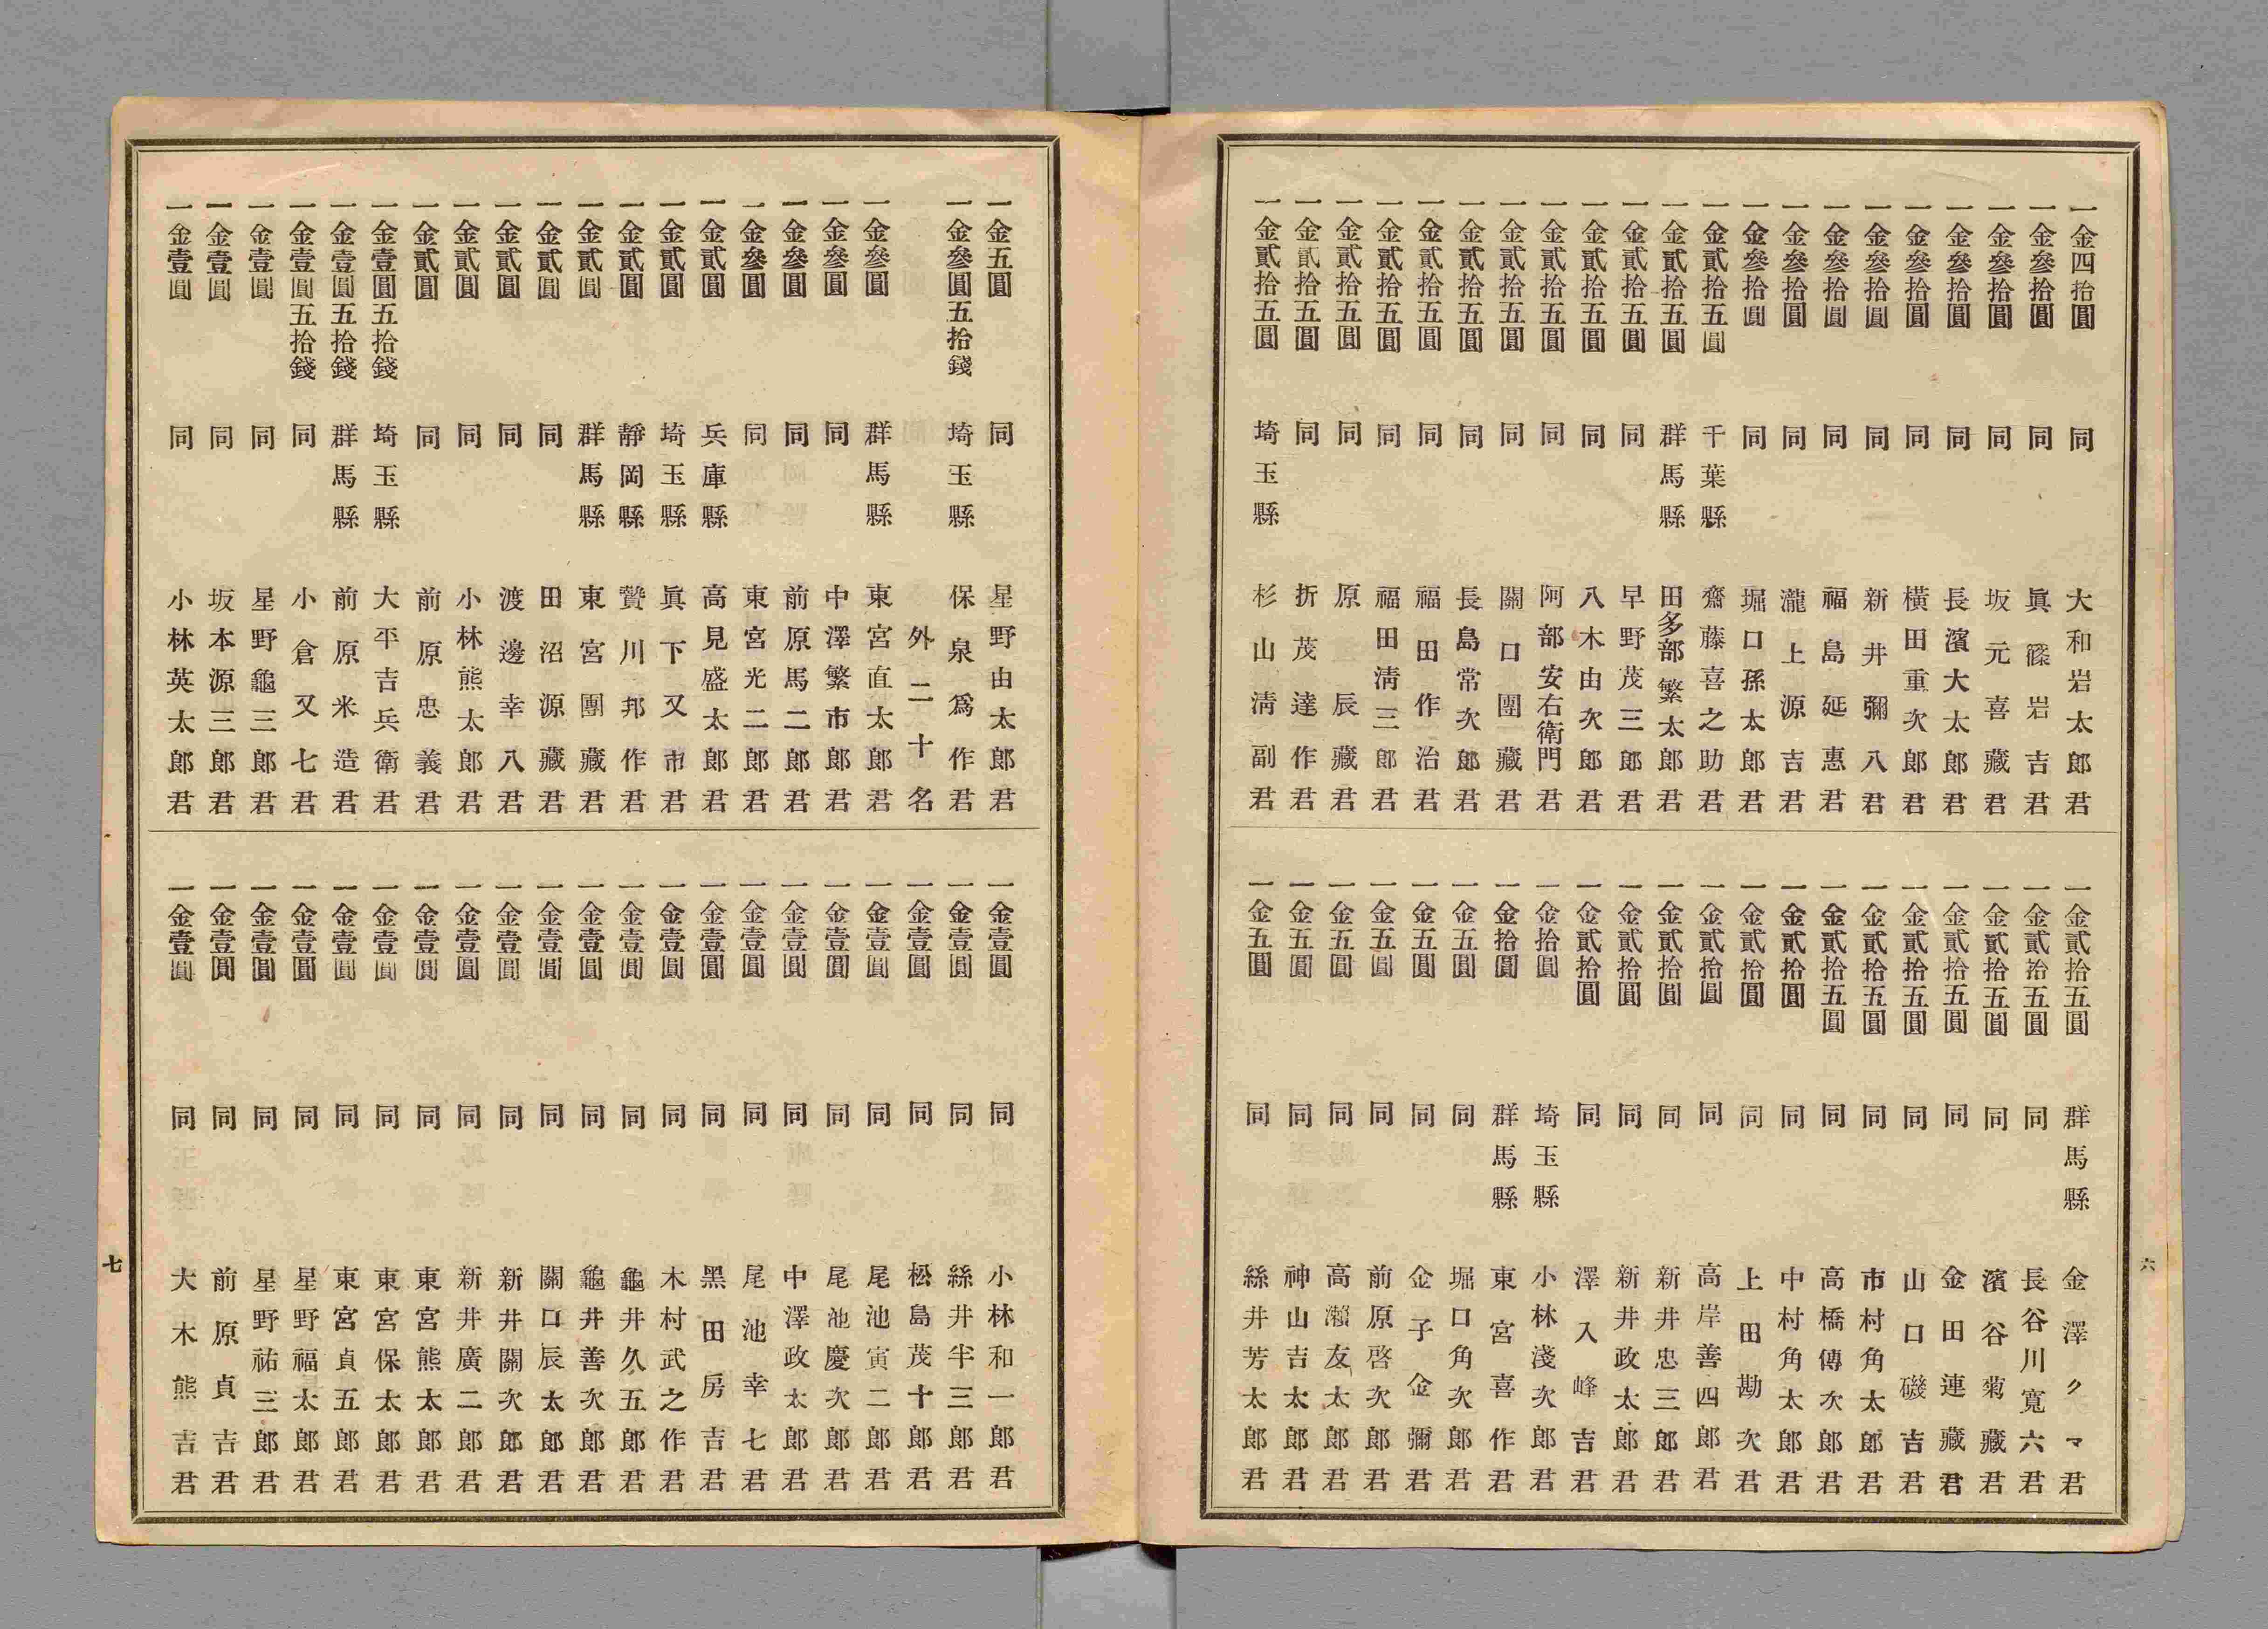 一金四拾圓 同 大和岩太郎君
一金參拾圓 同 眞篠岩吉君
一金參拾圓 同 坂元喜藏君
一金參拾圓 同 長濱大太郎君
一金參拾圓 同 横田重次郎君
一金參拾圓 同 新井彌八君
一金參拾圓 同 福島延惠君
一金參拾圓 同 瀧上源吉君
一金參拾圓 同 堀口孫太郎君
一金貳拾五圓 千葉縣 齋藤喜之助君
一金貳拾五圓 群馬縣 田多部繁太郎君
一金貳拾五圓 同 早野茂三郎君
一金貳拾五圓 同 八木由次郎君
一金貳拾五圓 同 阿部安右衛門君
一金貳拾五圓 同 關口團藏君
一金貳拾五圓 同 長島常次郎君
一金貳拾五圓 同 福田作治君
一金貳拾五圓 同 福田淸三郎君
一金貳拾五圓 同 原辰藏君
一金貳拾五圓 同 折茂達作君
一金貳拾五圓 埼玉縣 杉山淸副君
一金貳拾五圓 群馬縣 金澤クマ君
一金貳拾五圓 同 長谷川寬六君
一金貳拾五圓 同 濱谷菊藏君
一金貳拾五圓 同 金田連藏君
一金貳拾五圓 同 山口磯吉君
一金貳拾五圓 同 市村角太郎君
一金貳拾五圓 同 高橋傳次郎君
一金貳拾圓 同 中村角太郎君
一金貳拾圓 同 上田勘次君
一金貳拾圓 同 高岸善四郎君
一金貳拾圓 同 新井忠三郎君
一金貳拾圓 同 新井政太郎君
一金貳拾圓 同 澤入峰吉君
一金拾圓 埼玉縣 小林淺次郎君
一金拾圓 群馬縣 東宮喜作君
一金五圓 同 堀口角次郎君
一金五圓 同 金子金彌君
一金五圓 同 前原啓次郎君
一金五圓 同 高瀨友太郎君
一金五圓 同 神山吉太郎君
一金五圓 同 絲井芳太郎君
六
一金五圓 同 星野由太郎君
一金參圓五拾錢 埼玉縣 保泉爲作君
外二十名
一金參圓 群馬縣 東宮直太郎君
一金參圓 同 中澤繁市郎君
一金參圓 同 前原馬二郎君
一金參圓 同 東宮光二郎君
一金貳圓 兵庫縣 高見盛太郎君
一金貳圓 埼玉縣 眞下又市君
一金貳圓 靜岡縣 贊川邦作君
一金貳圓 群馬縣 東宮團藏君
一金貳圓 同 田沼源藏君
一金貳圓 同 渡邊幸八君
一金貳圓 同 小林熊太郎君
一金貳圓 同 前原忠義君
一金壹圓五拾錢 埼玉縣 大平吉兵衛君
一金壹圓五拾錢 群馬縣 前原米造君
一金壹圓五拾錢 同 小倉又七君
一金壹圓 同 星野龜三郎君
一金壹圓 同 坂本源三郎君
一金壹圓 同 小林英太郎君
一金壹圓 同 小林和一郎君
一金壹圓 同 絲井半三郎君
一金壹圓 同 松島茂十郎君
一金壹圓 同 尾池寅二郎君
一金壹圓 同 尾池慶次郎君
一金壹圓 同 中澤政太郎君
一金壹圓 同 尾池幸七君
一金壹圓 同 黑田房吉君
一金壹圓 同 木村武之作君
一金壹圓 同 龜井久五郎君
一金壹圓 同 龜井善次郎君
一金壹圓 同 關口辰太郎君
一金壹圓 同 新井關次郎君
一金壹圓 同 新井廣二郎君
一金壹圓 同 東宮熊太郎君
一金壹圓 同 東宮保太郎君
一金壹圓 同 東宮貞五郎君
一金壹圓 同 星野福太郎君
一金壹圓 同 星野祐三郎君
一金壹圓 同 前原貞吉君
一金壹圓 同 大木熊吉君
七